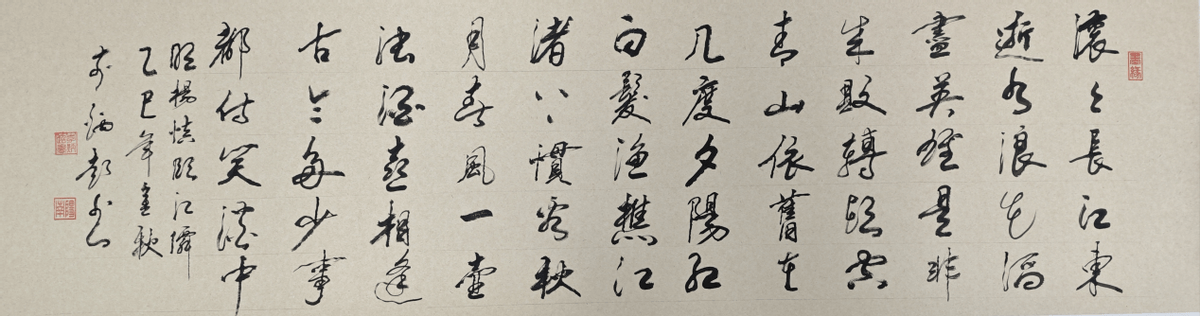 滾々長江東
逝水浪花淘
盡英雄是非
成敗轉頭空
青山依舊在
几度夕陽紅
白髮漁樵江
渚上慣看秋
月春風一壺
濁酒喜相逢
古今多少事
都付笑談中
明楊慎臨江僊
乙巳年金秋